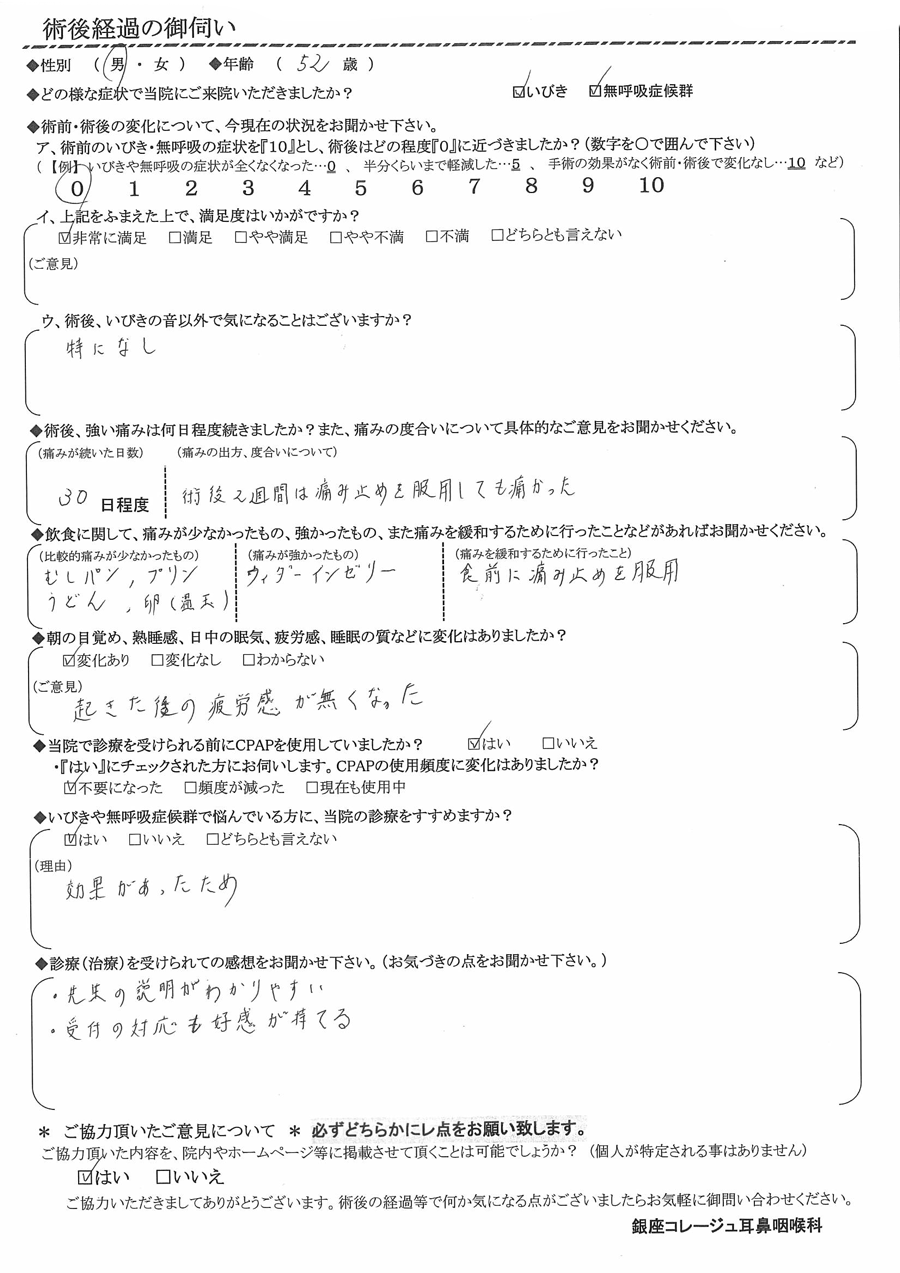 術後経過の御伺い
◆性別 ( 男 ・ 女 ) ◆年齢 ( 52 歳 )
◆どの様な症状で当院にご来院いただきましたか? ☑いびき ☑無呼吸症候群
◆術前・術後の変化について、今現在の状況をお聞かせ下さい。
ア、術前のいびき・無呼吸の症状を『10』とし、術後はどの程度『0』に近づきましたか?(数字を○で囲んで下さい)
(【例】いびきや無呼吸の症状が全くなくなった…0 、 半分くらいまで軽減した…5 、 手術の効果がなく術前・術後で変化なし…10 など)
0 1 2 3 4 5 6 7 8 9 10
イ、上記をふまえた上で、満足度はいかがですか?
☑非常に満足 □満足 □やや満足 □やや不満 □不満 □どちらとも言えない
(ご意見)
ウ、術後、いびきの音以外で気になることはございますか?
特になし
◆術後、強い痛みは何日程度続きましたか?また、痛みの度合いについて具体的なご意見をお聞かせください。
(痛みが続いた日数) (痛みの出方、度合いについて)
30 日程度 術後2週間は痛み止めを服用しても痛かった
◆飲食に関して、痛みが少なかったもの、強かったもの、また痛みを緩和するために行ったことなどがあればお聞かせください。
(比較的痛みが少なかったもの) (痛みが強かったもの) (痛みを緩和するために行ったこと)
むしパン, プリン ウィダーインゼリー 食前に痛み止めを服用
うどん , 卵(温玉)
◆朝の目覚め、熟睡感、日中の眠気、疲労感、睡眠の質などに変化はありましたか?
☑変化あり □変化なし □わからない
(ご意見)
起きた後の疲労感が無くなった
◆当院で診療を受けられる前にCPAPを使用していましたか? ☑はい □いいえ
・『はい』にチェックされた方にお伺いします。CPAPの使用頻度に変化はありましたか?
☑不要になった □頻度が減った □現在も使用中
◆いびきや無呼吸症候群で悩んでいる方に、当院の診療をすすめますか?
☑はい □いいえ □どちらとも言えない
(理由)
効果があったため
◆診療(治療)を受けられての感想をお聞かせ下さい。(お気づきの点をお聞かせ下さい。)
・先生の説明がわかりやすい
・受付の対応も好感が持てる
* ご協力頂いたご意見について * 必ずどちらかにレ点をお願い致します。
ご協力頂いた内容を、院内やホームページ等に掲載させて頂くことは可能でしょうか? (個人が特定される事はありません)
☑はい □いいえ
ご協力いただきましてありがとうございます。術後の経過等で何か気になる点がございましたらお気軽に御問い合わせください。
銀座コレージュ耳鼻咽喉科